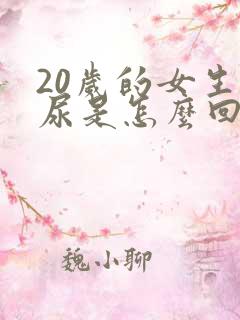 20歲的女生
尿是怎麼回
魏小聊